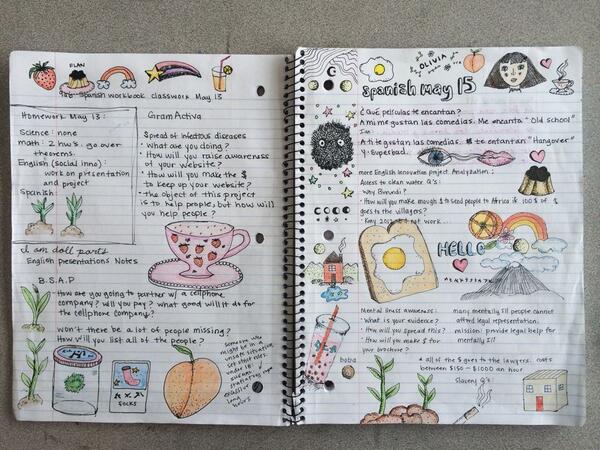 FLAN
Spanish workbook classwork May 13
Homework May 13:
Science: none
math: 2 hw's. go over
theorems.
English (social inno):
work on presentation
and project
Spanish:
GramActiva
Spread of infectious diseases
• what are you doing?
• How will you raise awareness
of your website?
• How will you make the $
to keep up your website?
• the object of this project
is to help people, but how will
you help people?
I am doll parts
English presentations Notes
B.S.A.P
How are you going to partner w/ a cellphone
company? will you pay? what good will it do for
the cellphone company?
won't there be a lot of people missing?
How will you list all of the people?
SOCKS
someone who
might be in a
unsafe situation
under 18
long
hours
OLIVIA
Spanish May 15
¿Qué películas te encantan?
A mi me gustan las comedias. Me encanta "Old school"
A ti te gustan las comedias. te encantan "Hangover"
y "Superbad.
more English Innovation project Analyzation:
Access to clean water Q's:
• Why Burundi?
• How will you make enough $ to send people to Africa if 100% of $
goes to the villagers?
• may not work...
HELLO
Mental illness awareness:
• What is your evidence?
• How will you spread this?
• How will you make $ for
your brochure?
many mentally ill people cannot
afford legal representation.
mission: provide legal help for
mentally ill
• all of the $ goes to the lawyers. costs
between $150 - $1000 an hour
boba
Slavery Q's: